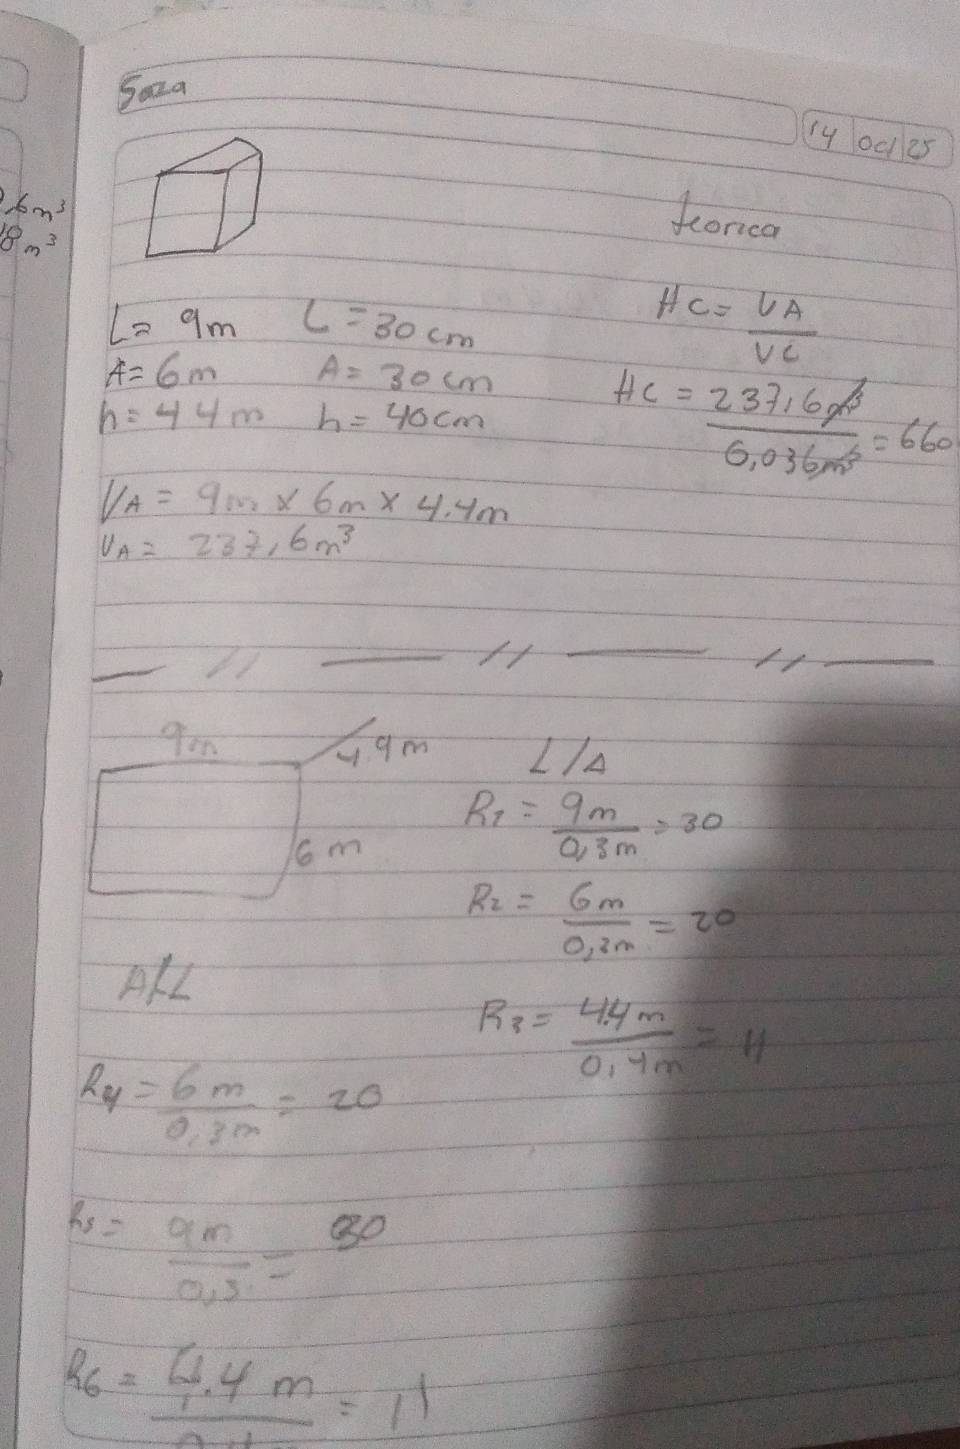 14 oct 25
,6m³
18m³
teorica
L= 9m L=30cm
A=6m A=30cm
h=44m h=40cm
HC= VA/VC
HC = 237,6m³/0,036m³ =660
VA= 9m x 6m x 4.4m
VA= 237,6m³
— // — // — // —
9m 4.9m
6m
L/A
R1 = 9m/0,3m = 30
R2 = 6m/0,3m = 20
R3 = 4.4m/0,4m = 11
A/L
R4 = 6m/0,3m = 20
R5 = 9m/0,3 = 30
R6 = 4.4m = 11